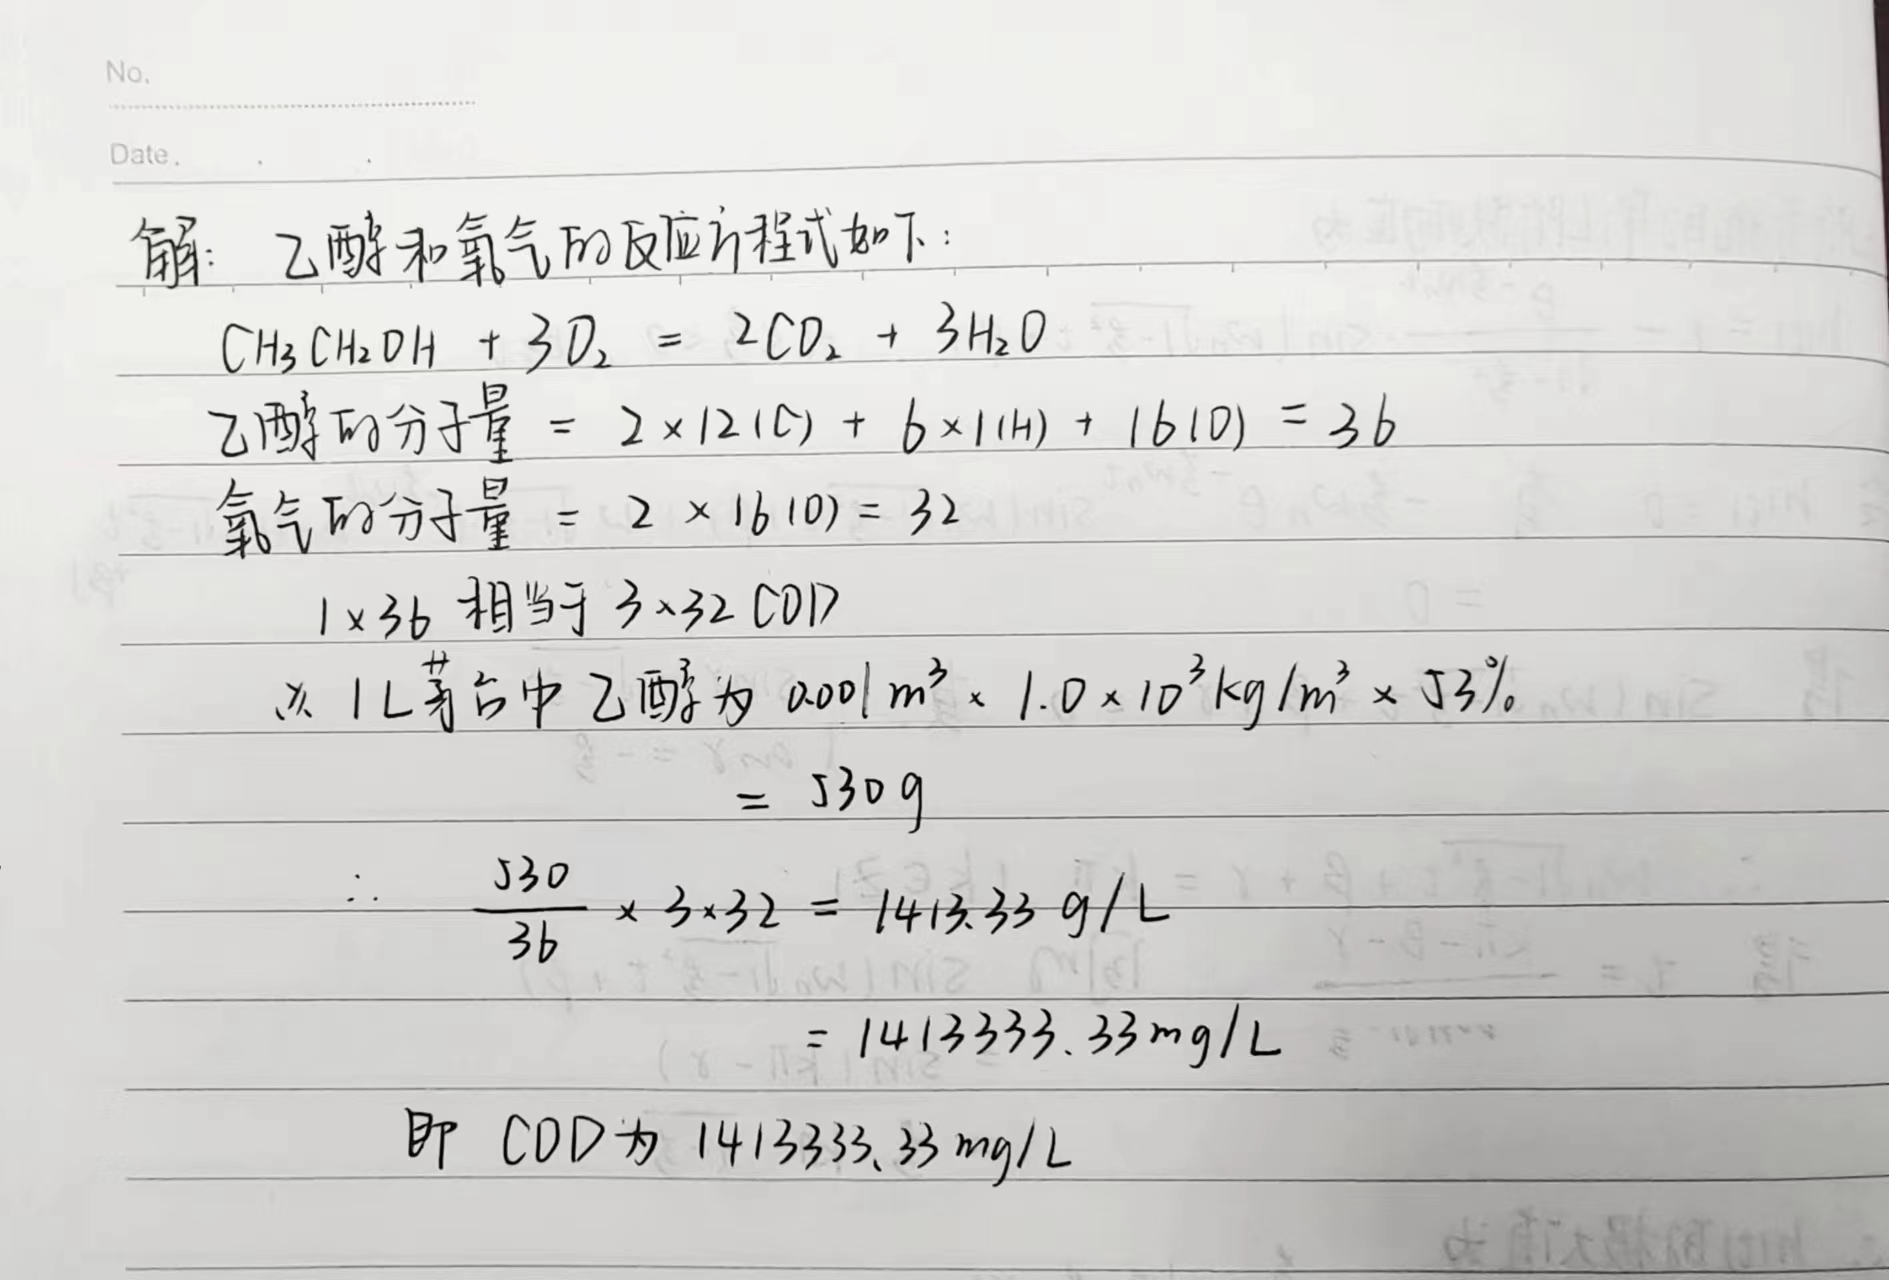 No.
Date.
解: 乙醇和氧气的反应方程式如下:
CH₃CH₂OH + 3O₂ = 2CO₂ + 3H₂O
乙醇的分子量 = 2×12(C) + 6×1(H) + 16(O) = 36
氧气的分子量 = 2×16(O) = 32
1×36 相当于 3×32 COD
∵ 1L茅台中乙醇为 0.001m³ × 1.0×10³kg/m³ × 53%
= 530g
∴ 530/36 × 3×32 = 1413.33 g/L
= 1413333.33mg/L
即 COD为 1413333.33mg/L